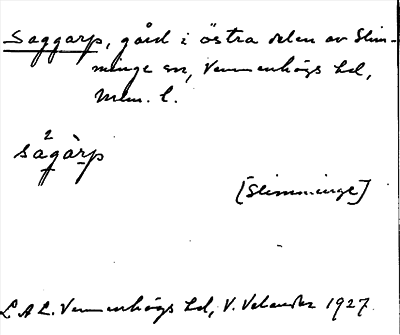 Saggarp, gård i östra delen av Slim-
minge sn, Vemmenhögs hd,
Mlm. l.
2
sågàrp
[Slimminge]
L.A.L. Vemmenhögs hd, V. Velander 1927.